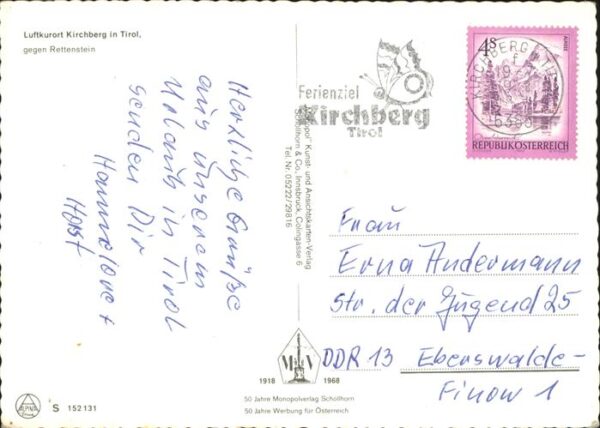 Luftkurort Kirchberg in Tirol,
gegen Rettenstein
Herzliche Grüße
aus unserem
Urlaub in Tirol
senden Dir
Hannelore +
Horst
Ferienziel
Kirchberg
Tirol
4S
REPUBLIK ÖSTERREICH
KIRCHBERG
6365
Kunst- und Ansichtskarten-Verlag
Schöllhorn & Co., Innsbruck, Colingasse 6
Tel. Nr. 05222/29816
Frau
Erna Andermann
Str. der Jugend 25
DDR 13 Eberswalde-
Finow 1
M V
1918 1968
50 Jahre Monopolverlag Schöllhorn
50 Jahre Werbung für Österreich
S 152131